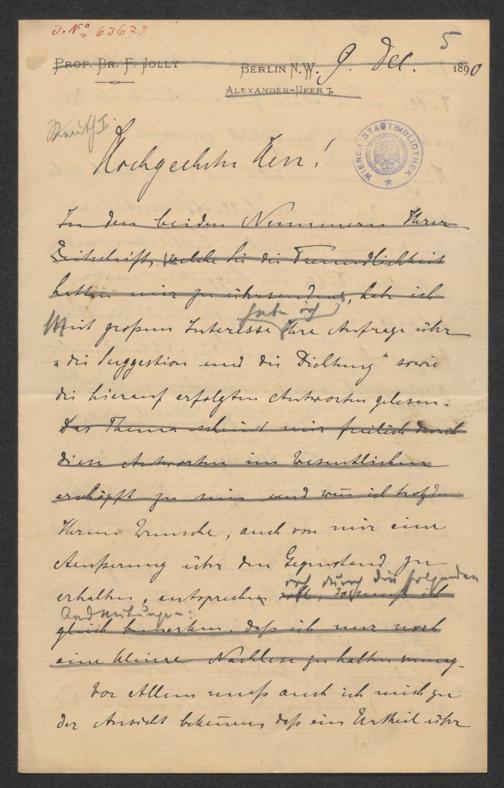 J. Nº 63678
5
PROF. DR. F. JOLLY
BERLIN N.W. 9. Dec. 1890
ALEXANDER-UFER 7.
WIENER STADTBIBLIOTHEK
Hochgeehrter Herr!
In den beiden Nummern Ihrer
Zeitschrift, welche Sie die Freundlichkeit
hatten mir zu übersenden, habe ich
habe ich
Mit großem Interesse Ihre Anfrage über
"die Suggestion und die Dichtung" sowie
die hierauf erfolgten Antworten gelesen.
Das Thema scheint mir freilich durch
diese Antworten im Wesentlichen
erschöpft zu sein und wenn ich trotzdem
Ihrem Wunsche, auch von mir eine
Aeußerung über den Gegenstand zu
durch die folgenden
erhalten, entsprechen soll, so muß ich
Andeutungen:
gleich bemerken, daß ich nur noch
eine kleine Nachlese zu halten vermag.
Vor Allem muß auch ich mich zu
der Ansicht bekennen, daß ein Urtheil über